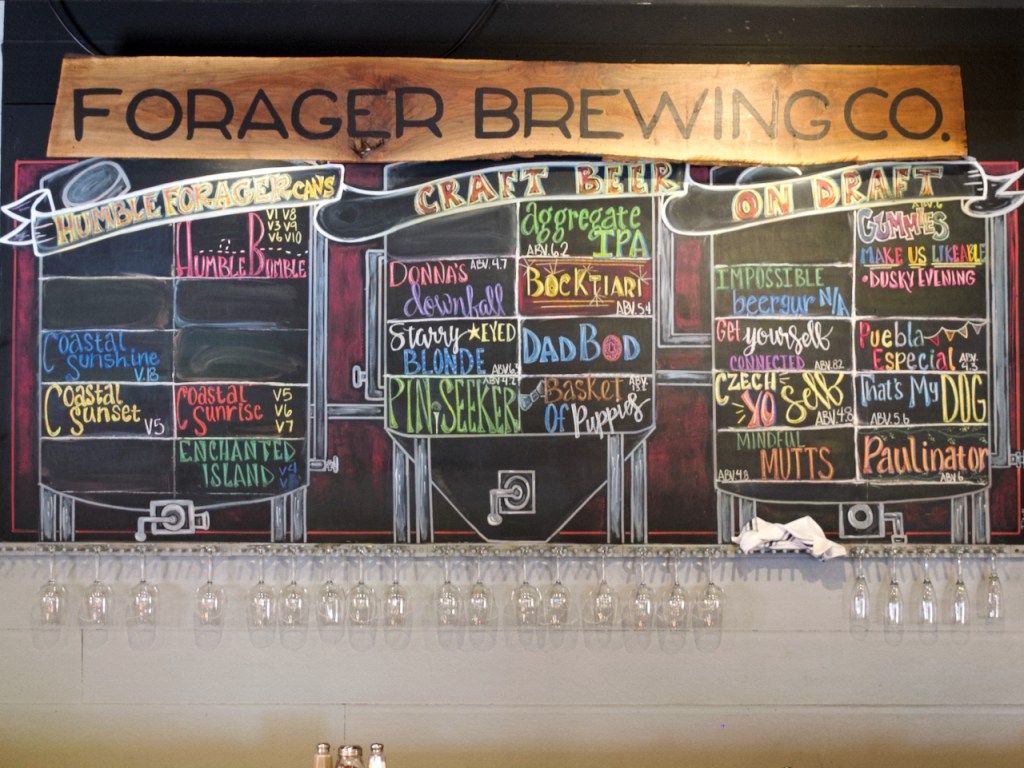 FORAGER BREWING CO.
HUMBLE FORAGER CANS
CRAFT BEER
ON DRAFT
V1 V8
V3 V9
V6 V10
HUMBLE BUMBLE
Coastal
Sunshine
V.13
Coastal
Sunset V5
Coastal
Sunrise
V5
V6
V7
ENCHANTED
ISLAND
V4
aggregate
IPA
ABV. 6.2
DONNA'S ABV. 4.7
downfall
BOCKTIARI
ABV. 5.4
Starry EYED
BLONDE
PIN SEEKER
ABV. 4.2
DAD BOD
BASKET
OF Puppies
GUMMIES
MAKE US LIKEABLE
•DUSKY EVENING
IMPOSSIBLE
beergur N/A
Get yourself
CONNECTED ABV. 8.2
Puebla
Especial
ABV. 4.3
CZECH
YO Self
ABV. 4.8
That's My DOG
ABV. 5.6
MINDFUL
MUTTS
ABV. 4.8
Paulinator
ABV. 6